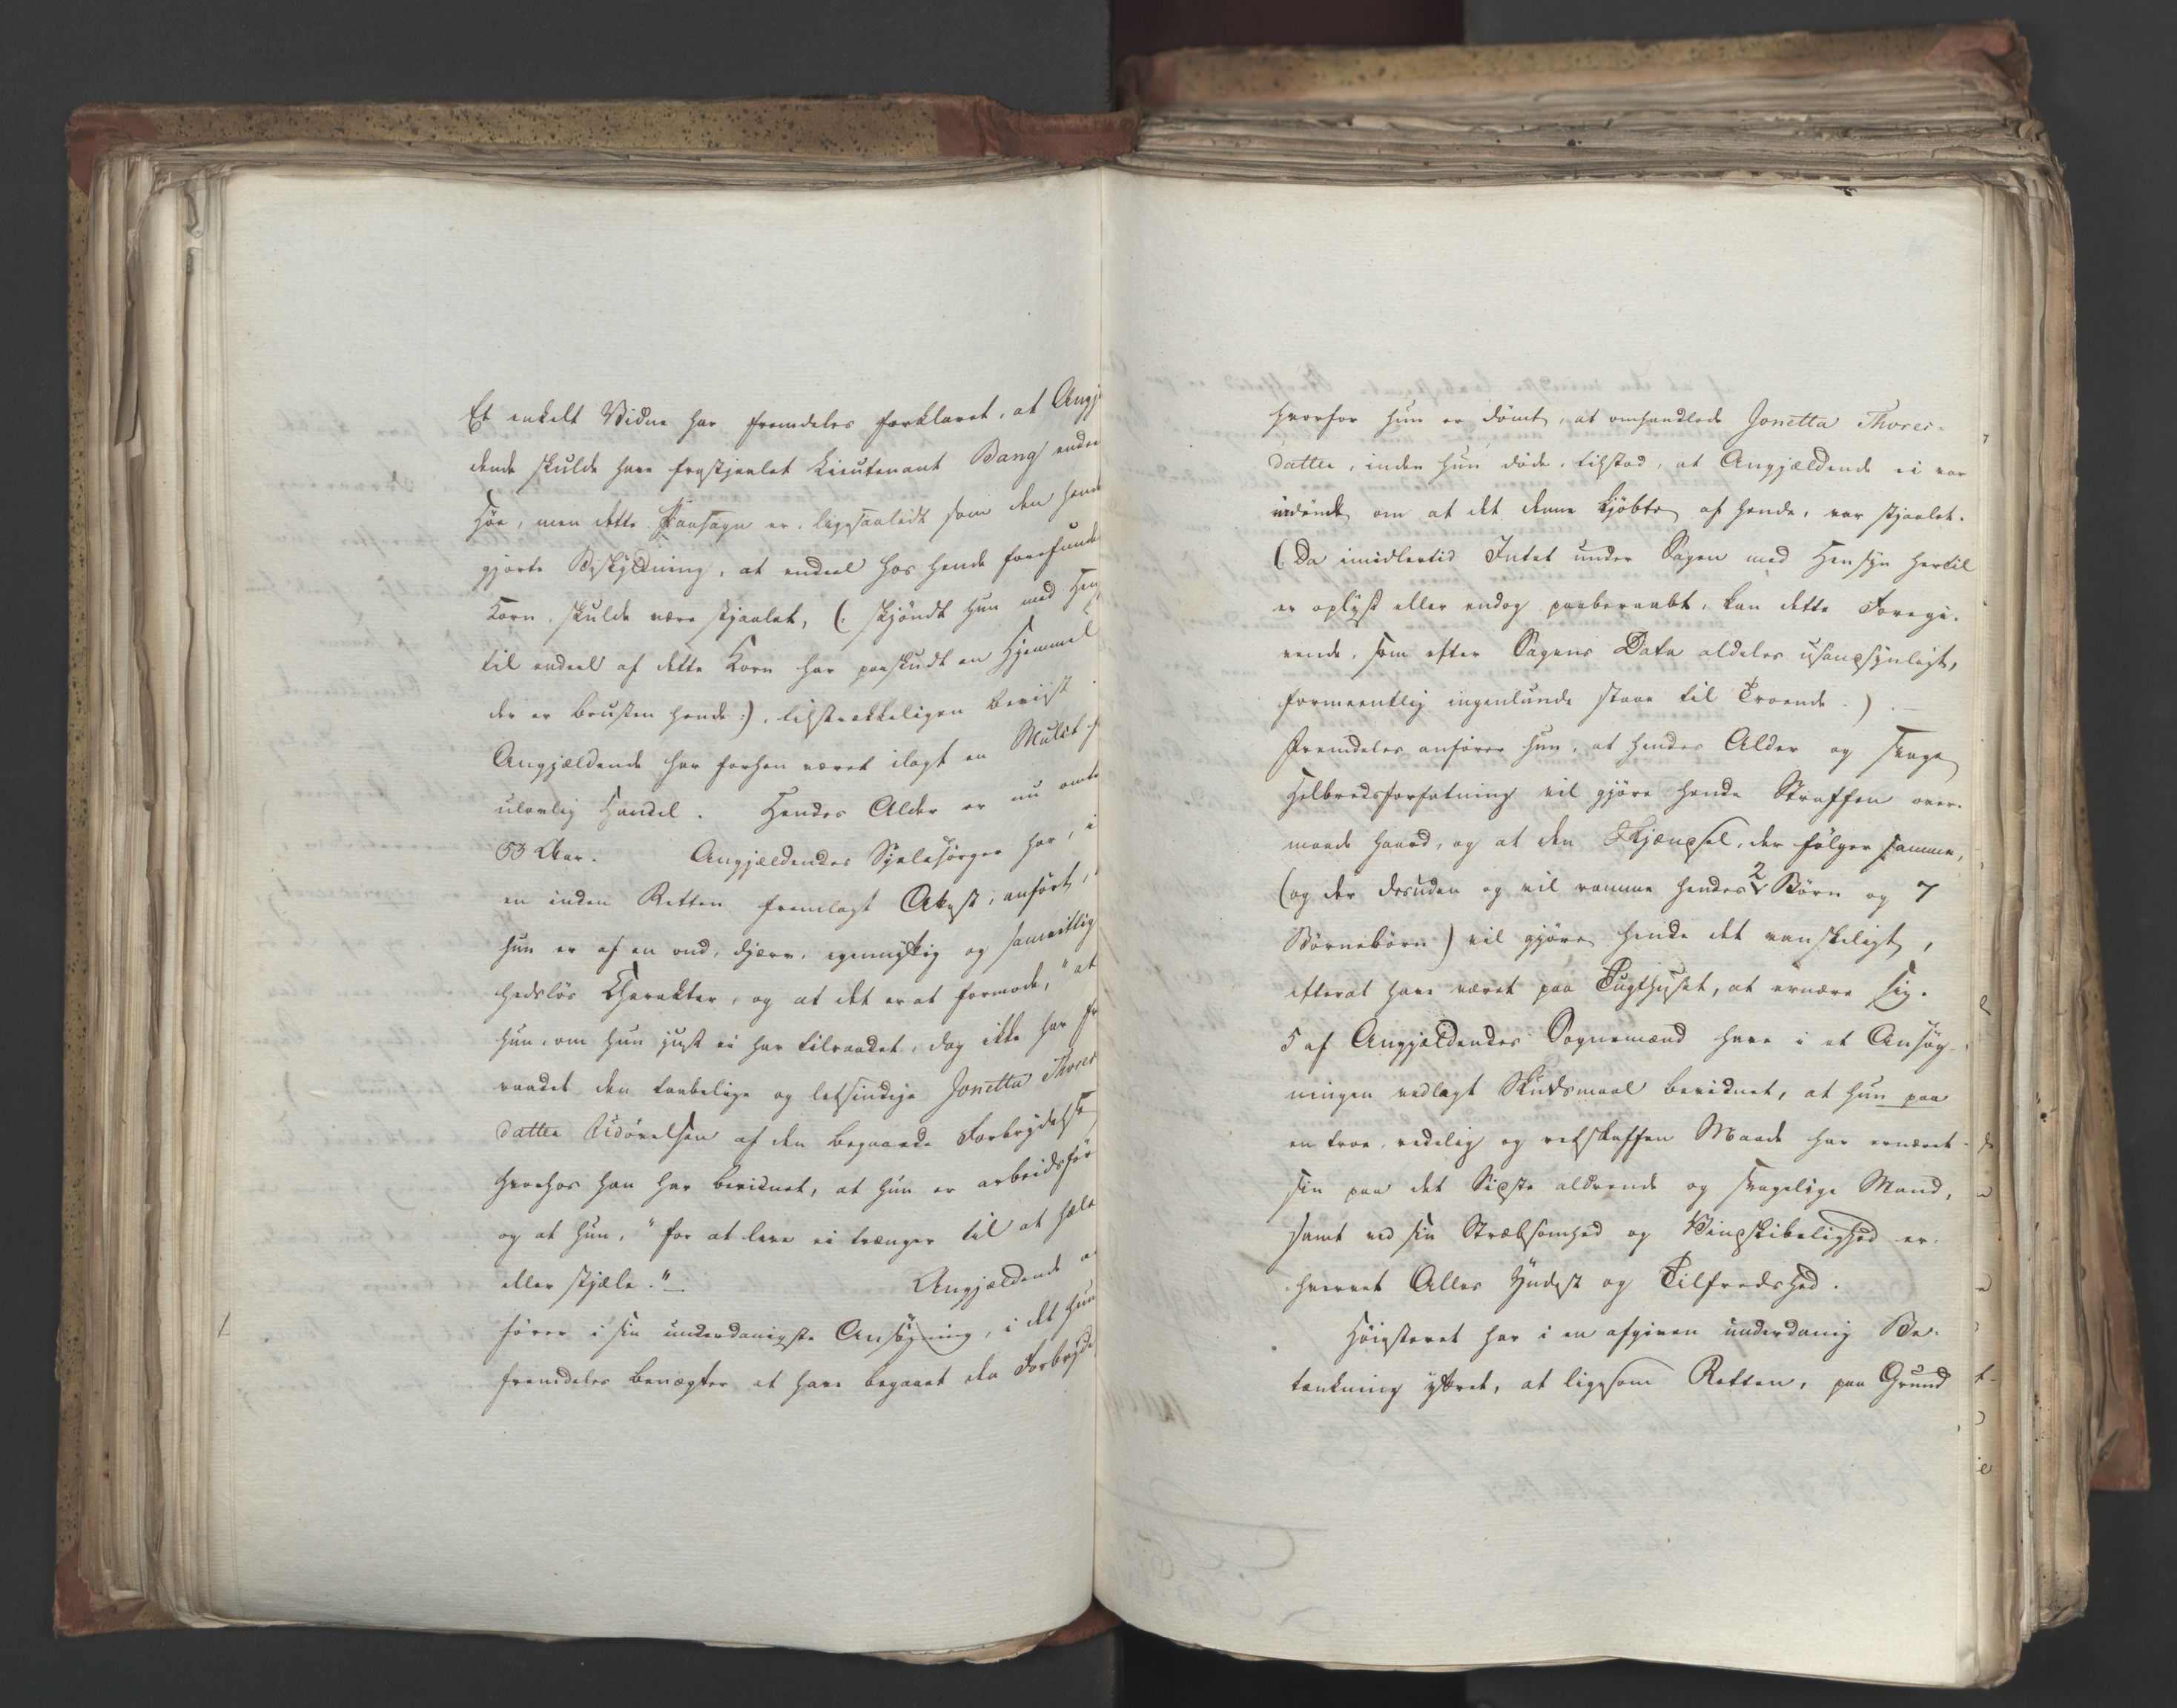 Et enkelt Vidne har fremdeles forklaret, at Angj
dende skulde have frastjaalet Lieutenant Bang endee
Höe, men dette Paasagn er, ligesaalidt som den hende
gjorte Beskyldning, at endeel hos hende forefunde
Korn, skulde være stjaalet, (: skjöndt hun med Hen
til endeel af dette Korn har paaskudt en Hjemmel
der er brusten hende:), tilstrækkeligen beviist.
Angjældende har forhen været ilagt en Mulct f
ulovlig Handel. Hendes Alder er nu omtr
53 Aar. Angjældendes Sjelesörger har, i
en inden Retten fremlagt Attest, anfört,
hun er af en ond, djærv, egennyttig og samvittig
hedslös Charakter, og at det er at formode, "at
hun, om hun just ei har tilraadet, dog ikke har fr
raadet den taabelige og letsindige Jonetta Thores
datter Udövelsen af den begaaede Forbrydelse
hvorhos han har bevidnet, at hun er arbeidsför
og at hun, "for at leve ei trænger til at hæle
eller stjæle." Angjældende a
förer i sin underdanigste Ansögning, i det hun
fremdeles benægter at have begaaet den Forbryde
hvorfor hun er dömt, at omhandlede Jonetta Thores-
datter, inden hun döde, tilstod, at Angjældende ei var
vidende om at det denne kjöbte af hende, var stjaalet.
(Da imidlertid Intet under Sagen med Hensyn hertil
er oplyst eller endog paaberaabt, kan dette Foregi-
vende, som efter Sagens Data aldeles usandsynligt,
formeentlig ingenlunde staae til Troende.)
Fremdeles anförer hun, at hendes Alder og svage
Helbredsforfatning vil gjöre hende Straffen over-
maade haard, og at den Skjændsel, der fölger samme,
(og der desuden og vil ramme hendes 2 Börn og 7
Börnebörn) vil gjöre hende det vanskeligt,
efterat have været paa Tugthuset, at ernære sig.
5 af Angjældendes Sognemænd have i et Ansög-
ningen vedlagt Skudsmaal bevidnet, at hun paa
en troe, redelig og retskaffen Maade har ernæret
sin paa det Sidste aldrende og svagelige Mand,
samt ved sin Stræbsomhed og Vindskibelighed er-
hvervet Alles Yndest og Tilfredshed.
Höiesteret har i en afgiven underdanig Be-
tænkning yttret, at ligesom Retten, paa Grund